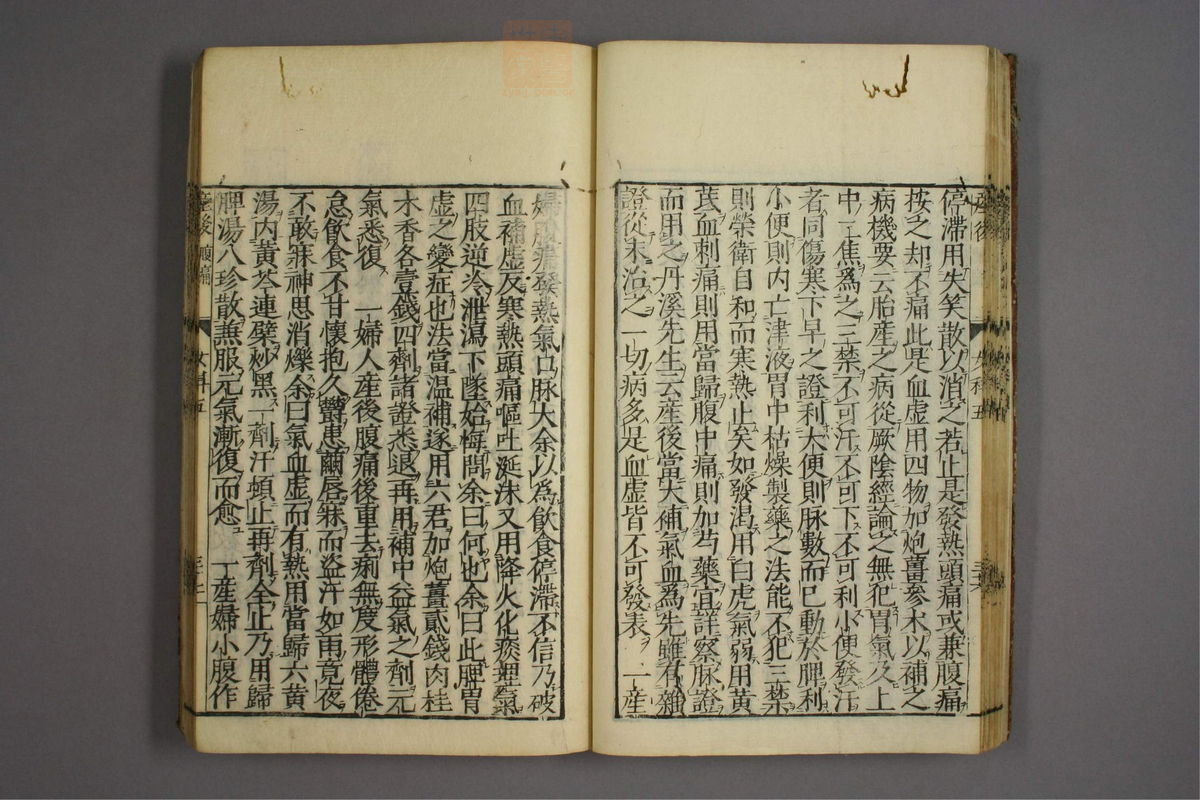 停滯用失笑散以消之若止是發熱頭痛或兼腹痛
按之却不痛此是血虛用四物加炮薑參朮以補之
病機要云胎產之病從厥陰經論之無犯胃氣及上
中二焦爲之三禁不可汗不可下不可利小便發汗
者同傷寒下早之證利大便則脉數而已動於脾利
小便則內亡津液胃中枯燥製藥之法能不犯三禁
則榮衛自和而寒熱止矣如發渴用白虎氣弱用黃
芪血刺痛則用當歸腹中痛則加芍藥宜詳察脉證
而用之丹溪先生云産後當大補氣血爲先雖有雜
證從末治之一切病多是血虛皆不可發表 一産
婦腹痛發熱氣口脉大余以爲飮食停滯不信乃破
血補虛反寒熱頭痛嘔吐涎沫又用降火化痰理氣
四肢逆冷泄瀉下墜始悔問余曰何也余曰此脾胃
虛之變症也法當溫補遂用六君加炮薑貳錢肉桂
木香各壹錢四劑諸證悉退再用補中益氣之劑元
氣悉復 一婦人産後腹痛後重去痢無度形體倦
怠飮食不甘懷抱久鬱患繭唇寐而盜汗如雨竟夜
不敢寐神思消爍余曰氣血虛而有熱用當歸六黃
湯內黃芩連蘗炒黑一劑汗頓止再劑全止乃用歸
脾湯八珍散兼服元氣漸復而愈 一産婦小腹作
産後 頭痛
女科五